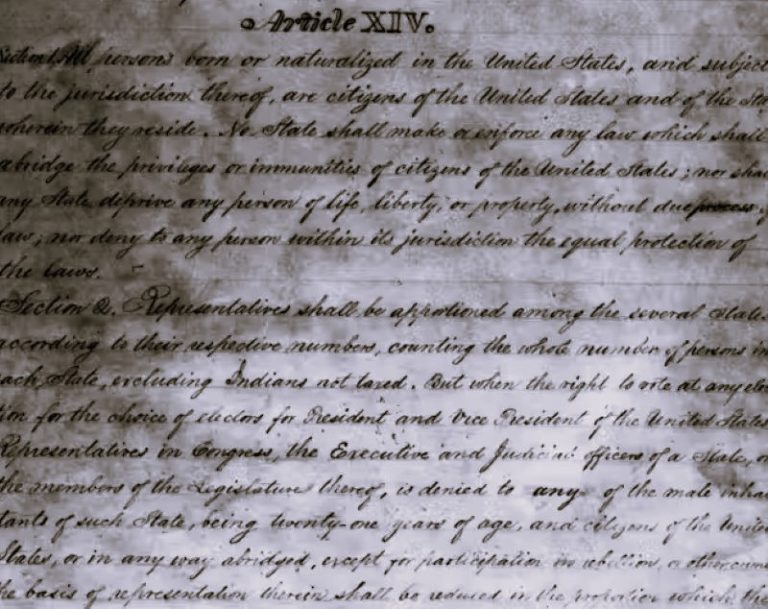 Article XIV.
Section 1. All persons born or naturalized in the United States, and subject
to the jurisdiction thereof, are citizens of the United States and of the Stat
wherein they reside. No State shall make or enforce any law which shall
abridge the privileges or immunities of citizens of the United States; nor shal
any State deprive any person of life, liberty, or property, without due process of
law; nor deny to any person within its jurisdiction the equal protection of
the laws.
Section 2. Representatives shall be apportioned among the several States
according to their respective numbers, counting the whole number of persons in
each State, excluding Indians not taxed. But when the right to vote at any elec
tion for the choice of electors for President and Vice President of the United States
Representatives in Congress, the Executive and Judicial officers of a State, or
the members of the Legislature thereof, is denied to any of the male inhabi
tants of such State, being twenty-one years of age, and citizens of the United
States, or in any way abridged, except for participation in rebellion, or other crime
the basis of representation therein shall be reduced in the proportion which the